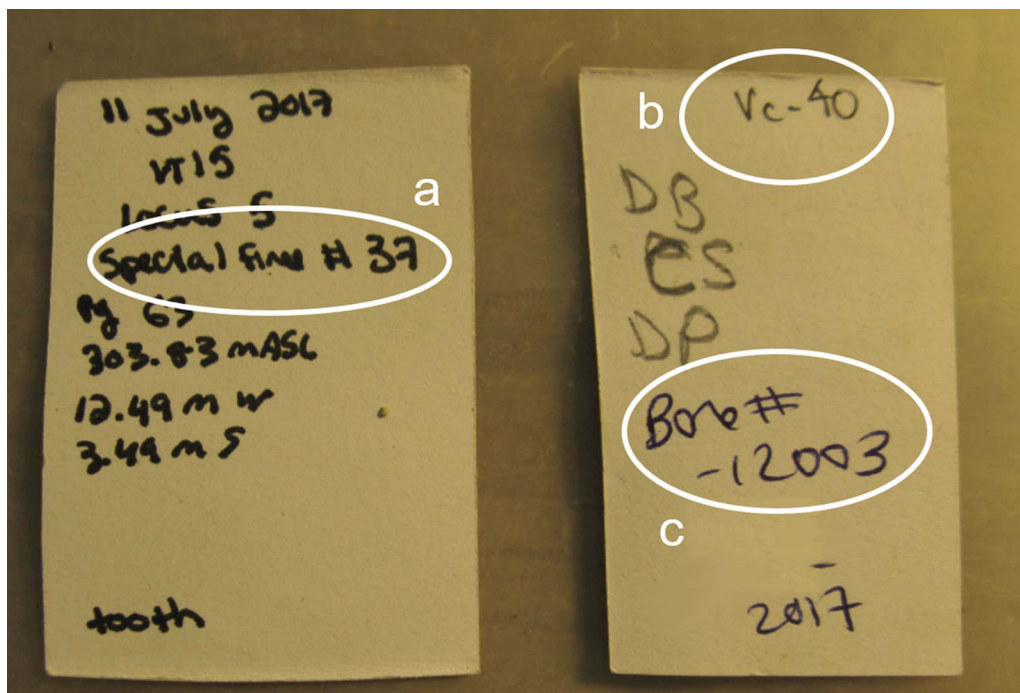 11 July 2017
VT15
locus 5
Special Find # 37
a
Pg 63
303.83 mASL
12.49 m W
3.49 m S
tooth
b
Vc-40
DB
ES
DP
Bone #
-12003
c
-
2017